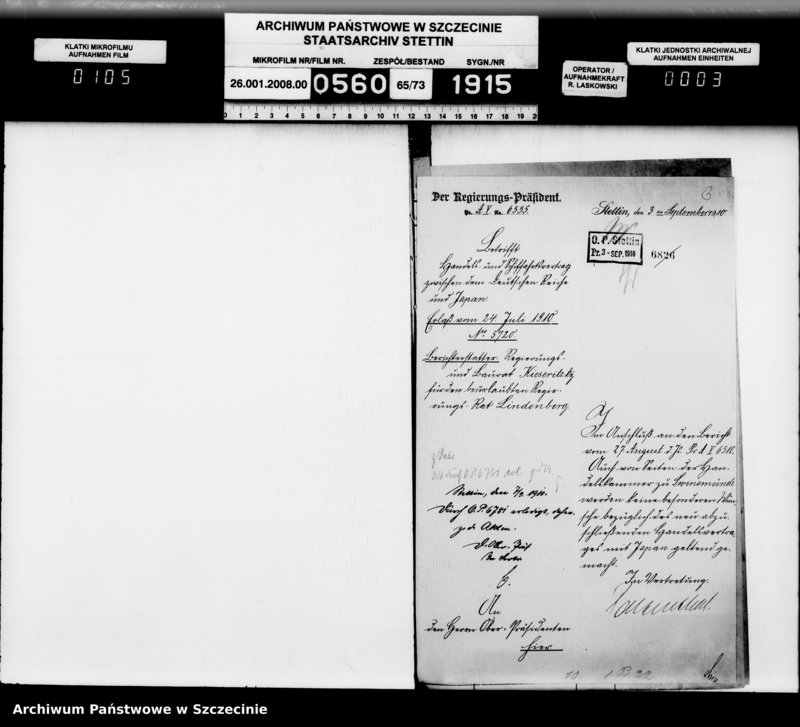 ARCHIWUM PAŃSTWOWE W SZCZECINIE
STAATSARCHIV STETTIN
KLATKI MIKROFILMU
AUFNAHMEN FILM
0105
MIKROFILM NR/FILM NR. ZESPÓŁ/BESTAND SYGN./NR
26.001.2008.00 0560 65/73 1915
OPERATOR /
AUFNAHMEKRAFT
R. LASKOWSKI
KLATKI JEDNOSTKI ARCHIWALNEJ
AUFNAHMEN EINHEITEN
0003
0 1 2 3 4 5 6 7 8 9 10 11 12 13 14 15 16 17 18 19 20
Der Regierungs-Präsident.
Pr. A V No. 6535.
Stettin, den 3 ten September 1910
3
O. P. Stettin
Pr. 3 - SEP. 1910
6826
Betrifft
Handels- und Schiffahrtsvertrag
zwischen dem Deutschen Reiche
und Japan
Erlaß vom 24. Juli 1910
No. 5720.
Berichterstatter: Regierungs-
und Baurat Kieseritzky
für den beurlaubten Regie-
rungs-Rat Lindenberg
Stettin, den 1910.
Durch O.P. 6781 erledigt, daher
z. d. Akten.
D. Ober-Präs
An
den Herrn Ober-Präsidenten
hier
Im Anschluß an den Bericht
vom 27 August d. Js. Pr. A V 6510.
Auch von Seiten der Han-
delskammer zu Swinemünde
werden keine besonderen Wün-
sche bezüglich des neu abzu-
schließenden Handelsvertra-
ges mit Japan geltend ge-
macht.
In Vertretung.
Archiwum Państwowe w Szczecinie